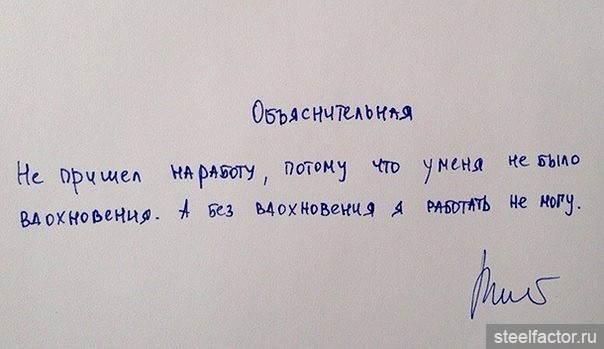 Объяснительная
Не пришел на работу, потому что у меня не было
вдохновения. А без вдохновения я работать не могу.
steelfactor.ru